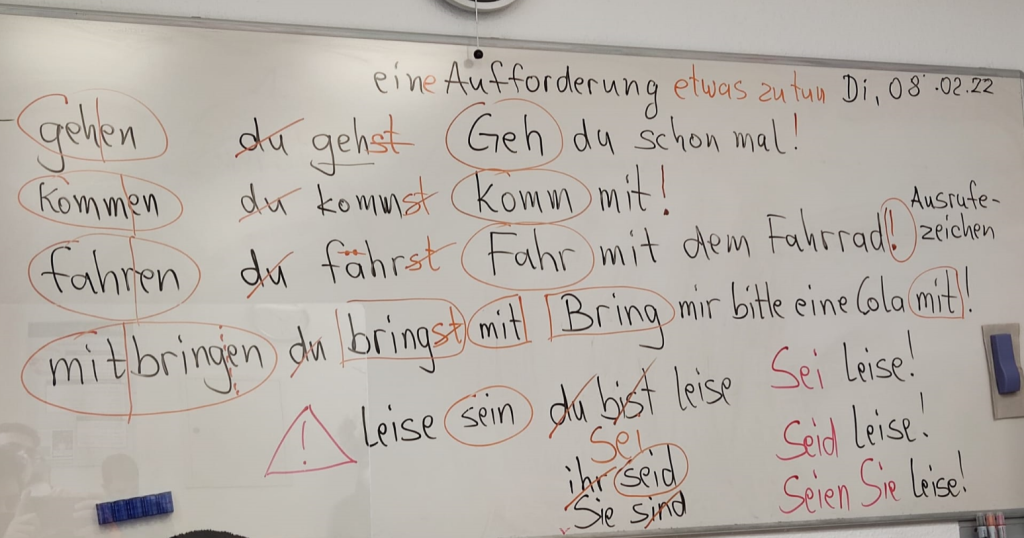 eine Aufforderung etwas zu tun Di, 08.02.22
gehen du gehst Geh du schon mal!
kommen du kommst Komm mit!
fahren du fährst Fahr mit dem Fahrrad! Ausrufe-
zeichen
mitbringen du bringst mit Bring mir bitte eine Cola mit!
! Leise sein du bist leise Sei leise!
Sei
ihr seid Seid leise!
Sie sind Seien Sie leise!